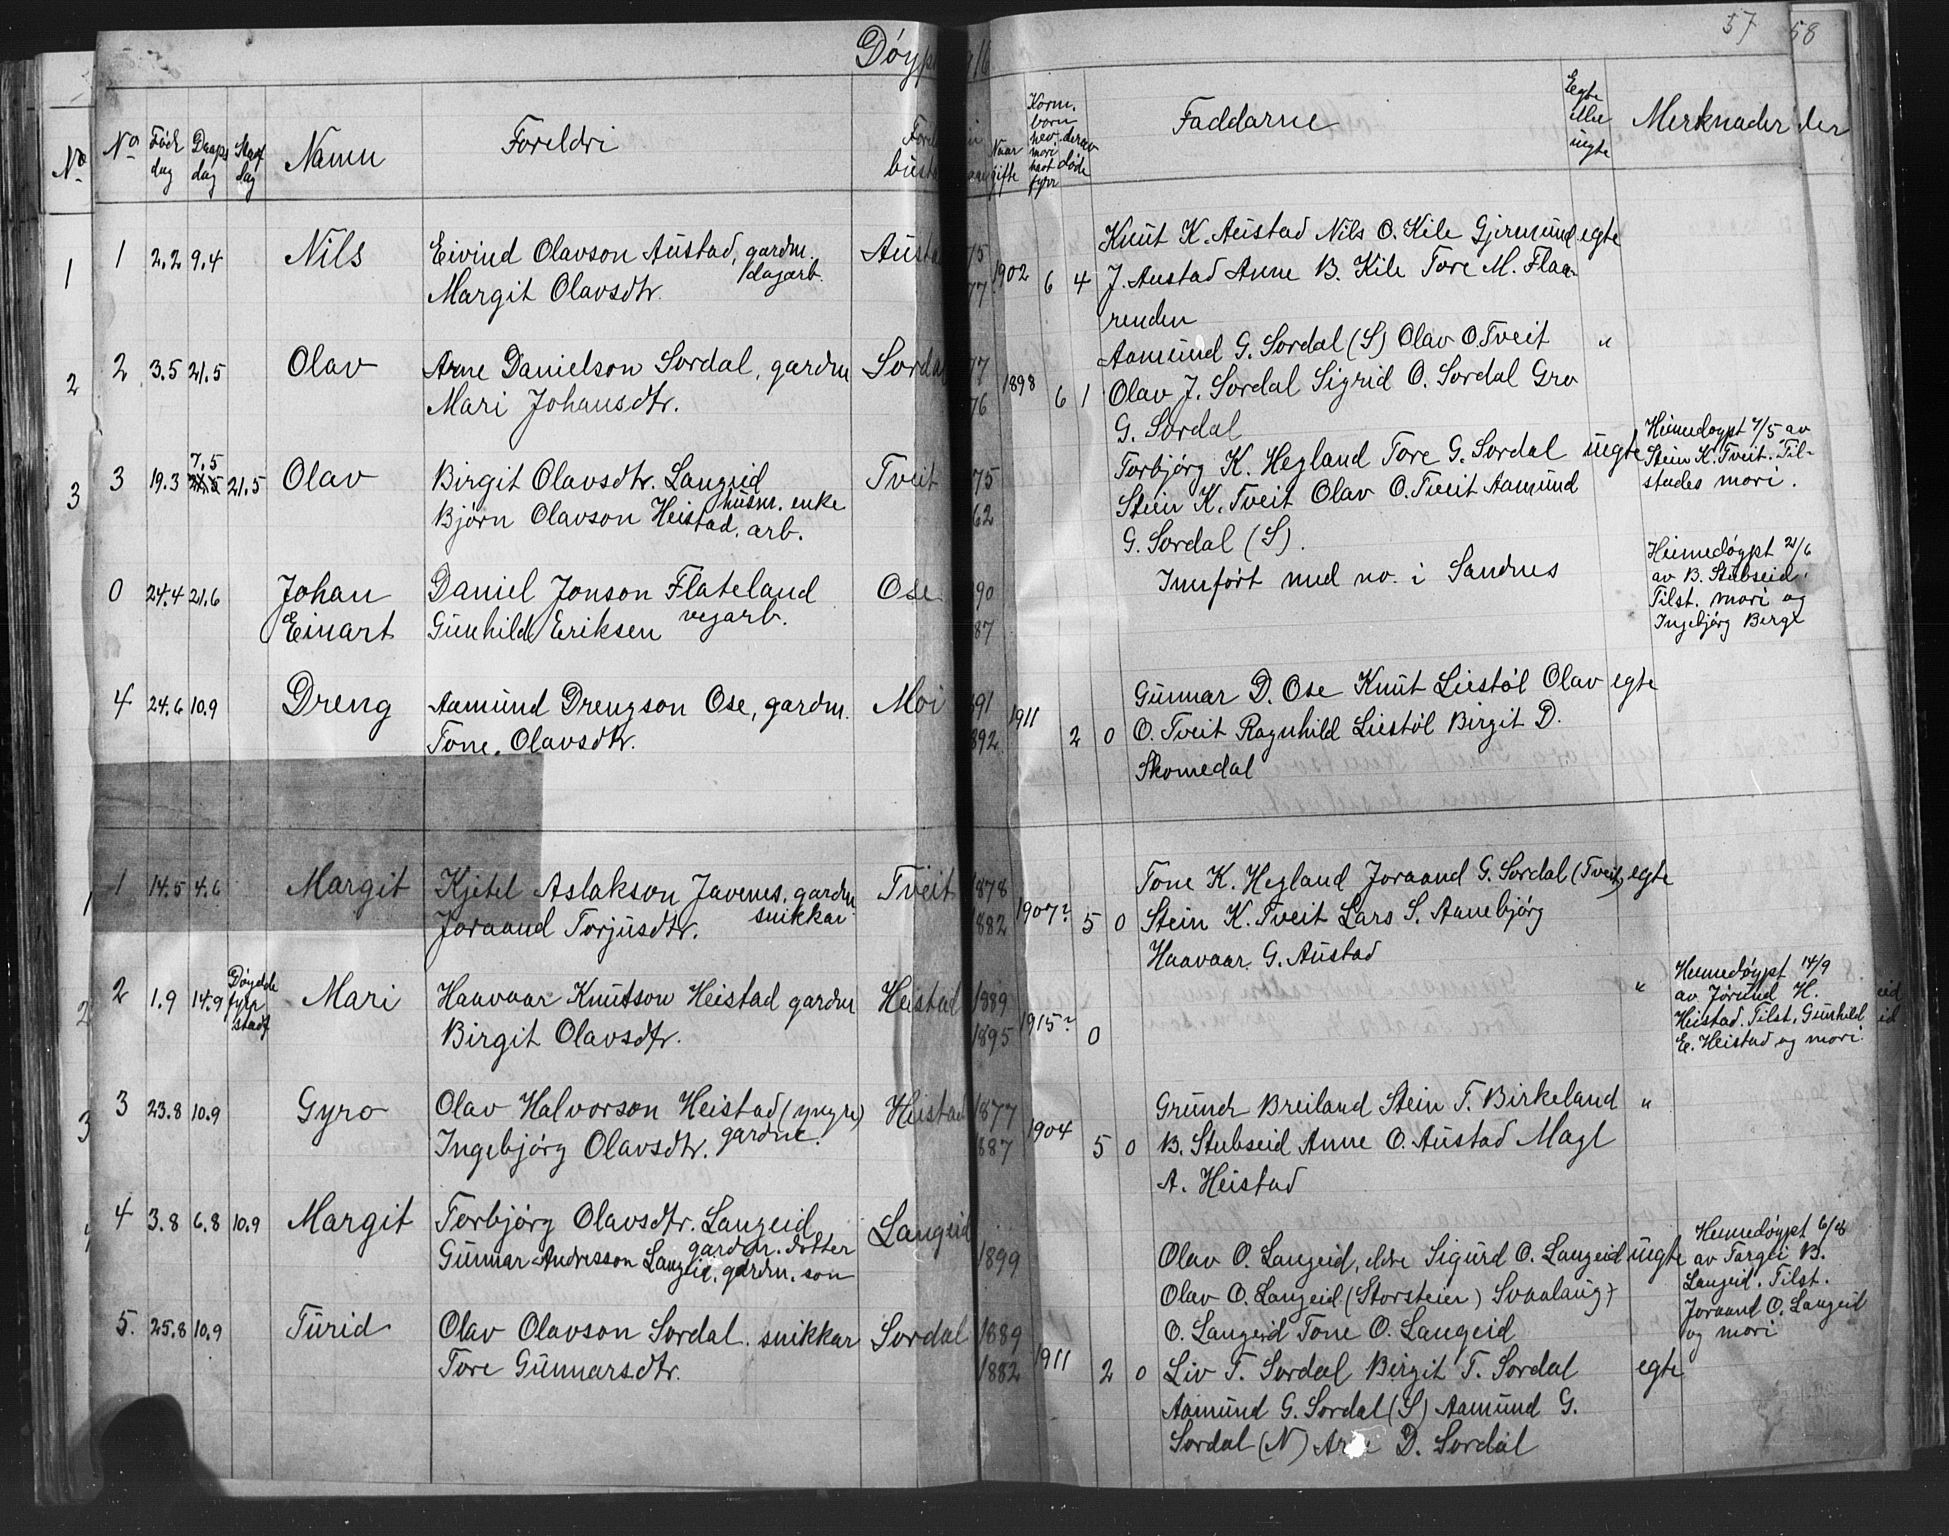 57 58
Døyp 16
No No Fødedag Daapsdag Stadf dag Namn Foreldri Naar gifte Korm. born hev mori havt fyrr derav døde Faddarne Egte elle uegte Merknader
1 1 2.2 9.4 Nils Eivind Olavson Austad, gardm. dagarb. Austa 75 1902 6 4 Knut K. Austad Nils O. Kile Gjermund egte
Margit Olavsdtr. 77 J. Austad Anne B. Kile Tore M. Flaa-
renden
2 2 3.5 21.5 Olav Arne Danielson Sordal, gardm Sordal 77 1898 6 1 Aamund G. Sordal (S) Olav O. Tveit "
Mari Johansdtr. 76 Olav J. Sordal Sigrid O. Sordal Gro
G. Sordal
3 3 19.3 7.5 21.5 Olav Birgit Olavsdtr. Langeid husm. enke Tveit 75 Torbjørg K. Hegland Tore G. Sordal uegte
Bjørn Olavson Heistad. arb. 62 Stein K. Tveit Olav O. Tveit Aamund
G. Sordal (S).
Heimedøypt 7/5 av
Stein K. Tveit. Til-
stades mori.
0 24.4 21.6 Johan Daniel Jonson Flateland vegarb. Ose 90 Innført med no. i Sandnes
Einart Gunhild Eriksen 87
Heimedøypt 21/6
av B. Stubseid.
Tilst. mori og
Ingebjørg Berge
4 24.6 10.9 Dreng Aamund Drengson Ose, gardm. Moi 891 1911 2 0 Gunnar D. Ose Knut Liestøl Olav egte
Tone. Olavsdtr. 892 O. Tveit Ragnhild Liestøl Birgit D.
Skomedal
1 1 14.5 4.6 Margit Kjetel Aslakson Javenes, gardm snikkar Tveit 1878 1907? 5 0 Tone K. Hegland Joraand G. Sordal (Tveit) egte
Joraand Torjusdtr. 882 Stein K. Tveit Lars S. Aanebjørg
Haavaar G. Austad
2 2 1.9 14.9 Døydde fyrr stadf Mari Haavaar Knutson Heistad gardm Heistad 1889 1915? 0 "
Birgit Olavsdtr. 1895
Heimedøypt 14/9
av Jørund H.
Heistad. Tilst. Gunhild
E. Heistad og mori.
3 3 23.8 10.9 Gyro Olav Halvorson Heistad (yngre) gardm. Heistad 1877 1904 5 0 Breiland Stein T. Birkeland "
Ingebjørg Olavsdtr. 887 B. Stubseid Anne O. Austad Magl
A. Heistad
4 4 3.8 6.8 10.9 Margit Torbjørg Olavsdtr. Langeid gardm. dotter Langeid Olav O. Langeid, eldre Sigurd O. Langeid uegte
Gunnar Andresson Langeid, gardm. son 1899 Olav O. Langeid (Storsteier) Svaalaug
O. Langeid Tone O. Langeid
Heimedøypt 6/8
av Targei B.
Langeid. Tilst.
Joraand O. Langeid
og mori
5. 25.8 10.9 Turid Olav Olavson Sordal. snikkar Sordal 1889 1911 2 0 Liv T. Sordal Birgit T. Sordal egte
Tore Gunnarsdtr. 1882 Aamund G. Sordal (S) Aamund G.
Sordal (N) D. Sordal